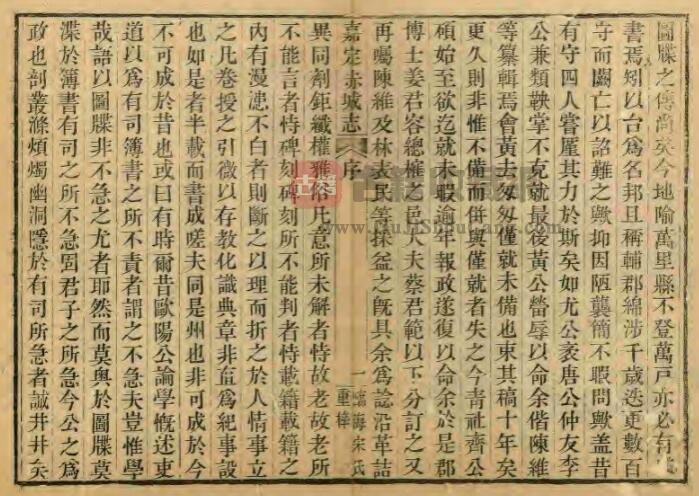 圖牒之傳尚矣今地隃萬里縣不登萬戸亦必有
書焉矧以台為名邦且稱輔郡綿涉千歲迭更數百
守而闕亡以詔難之歟抑因陋襲簡不暇問歟蓋昔
有守四人嘗屢其力於斯矣如尤公袤唐公仲友李
公兼類鞅掌不克就最後黃公㽦辱以命余偕陳維
等纂輯焉會黃去匆匆僅就未備也東其稿十年矣
更久則非惟不備而併與僅就者失之今青社齊公
碩始至欲迄就未暇逾年報政遂復以命余於是郡
博士姜君容總榷之邑大夫蔡君範以下分訂之又
再囑陳維及林表民等採益之既具余為諗沿革詰
嘉定赤城志 序 一 臨海宋氏重梓
異同劑鉅纖權雅俗凡意所未解者恃故老故老所
不能言者恃碑刻碑刻所不能判者恃載籍載籍之
內有漫漶不白者則斷之以理而折之於人情事立
之凡卷授之引微以存教化識典章非直為紀事設
也如是者半載而書成嗟夫同是州也非可成於今
不可成於昔也或曰有時爾昔歐陽公論學慨述吏
道以為有司簿書之所不責者謂之不急夫豈惟學
哉語以圖牒非不急之尤者耶然而莫輿於圖牒莫
渫於簿書有司之所不急固君子之所急今公之為
政也剖叢滌煩燭幽洞隱於有司所急者誠井井矣
古籍印書網
www.GuJiShuFang.com